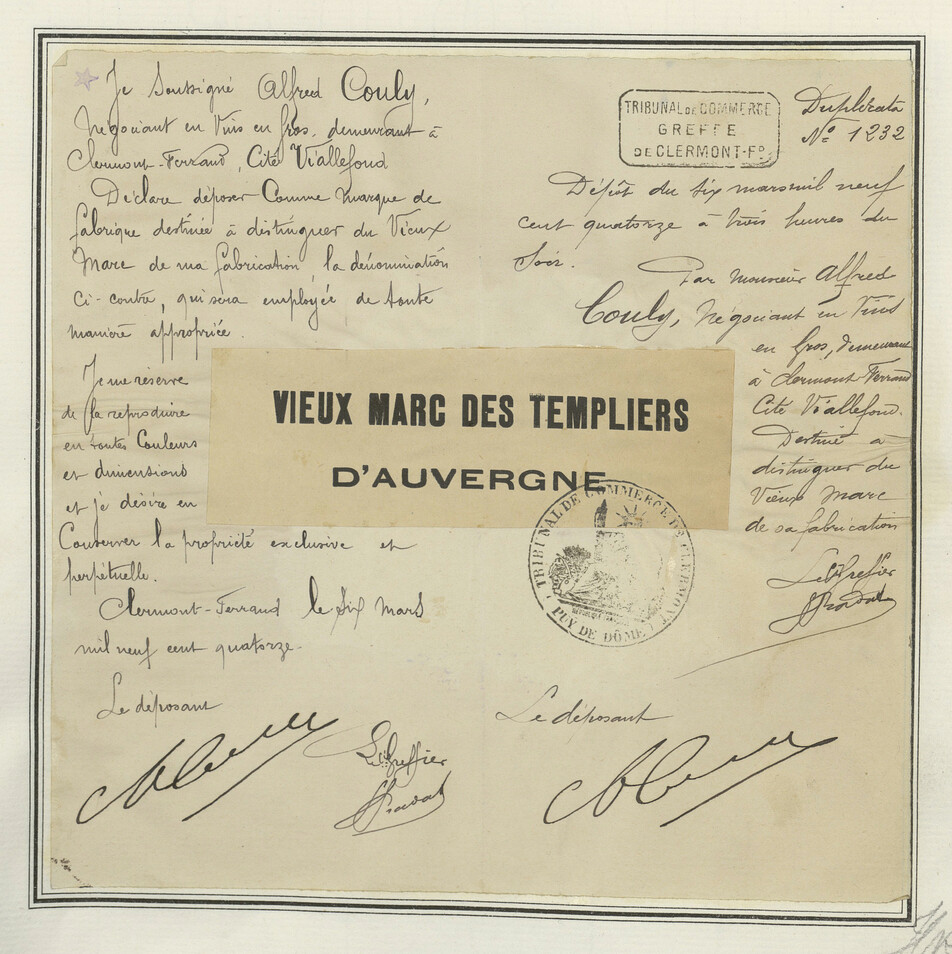 Je soussigné Alfred Couly,
Négociant en Vins en Gros, demeurant à
Clermont-Ferrand, Cité Viallefond
Déclare déposer Comme marque de
fabrique destinée à distinguer du Vieux
Marc de ma fabrication, la dénomination
ci-contre, qui sera employée de toute
manière appropriée.
Je me réserve
de la reproduire
en toutes Couleurs
et dimensions
et je désire en
Conserver la propriété exclusive et
perpétuelle.
Clermont-Ferrand le six mars
mil neuf cent quatorze.
Le déposant
Le Greffier
VIEUX MARC DES TEMPLIERS
D'AUVERGNE
TRIBUNAL DE COMMERCE
GREFFE
DE CLERMONT-Fd
Duplicata
No 1232
Dépôt du six mars mil neuf
cent quatorze à trois heures du
Soir.
Par Monsieur Alfred
Couly, Négociant en Vins
en Gros, demeurant
à Clermont-Ferrand
Cité Viallefond.
Destiné à
distinguer du
Vieux Marc
de sa fabrication
Le Greffier
TRIBUNAL DE COMMERCE DE CLERMONT
PUY DE DÔME
Le déposant